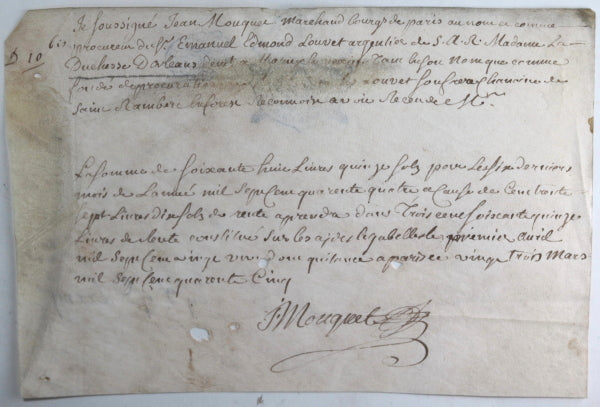 Je soussigné Jean Mouquet marchand bourgs de paris au nom et comme
D 10 bis procureur du Sr Emanuel Edmond Louvet argentier de S. A. R. Madame La
Duchesse Dorleans dem.t a tant en son nom que comme
de procuration Louvet son frere chanoine de
Saint Rambert en forez Reconnois avoir Receu de Mr
La somme de soixante huit Livres quinze sols pour Les six derniers
mois de Lannée mil sept cent quarente quatre a Cause de Cent trente
sept Livres dix sols de rente a prendre dans Trois cens soixante quinze
Livres de Rente constitué sur les aydes et gabelles le premier avril
mil sept cent vingt un dont quitance a paris ce vingt Trois Mars
mil sept cent quarente Cinq
J. Mouquet